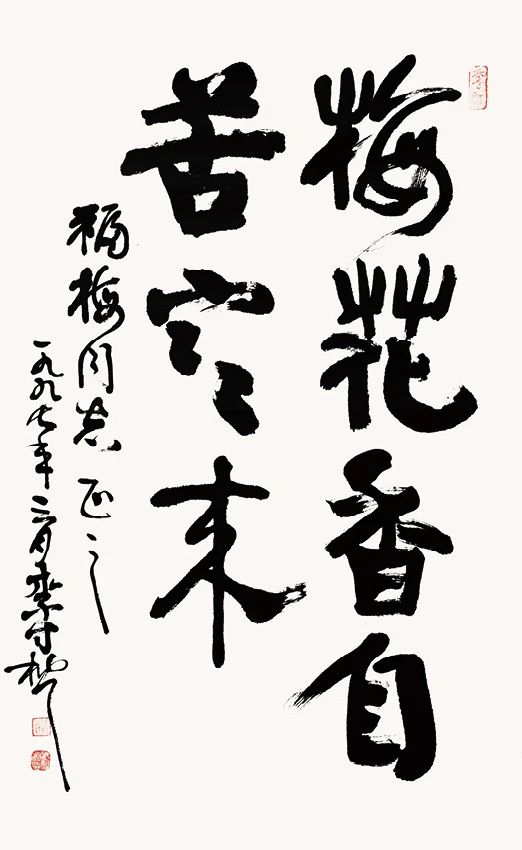 梅花香自
苦寒来
福梅同志正之
一九九七年三月